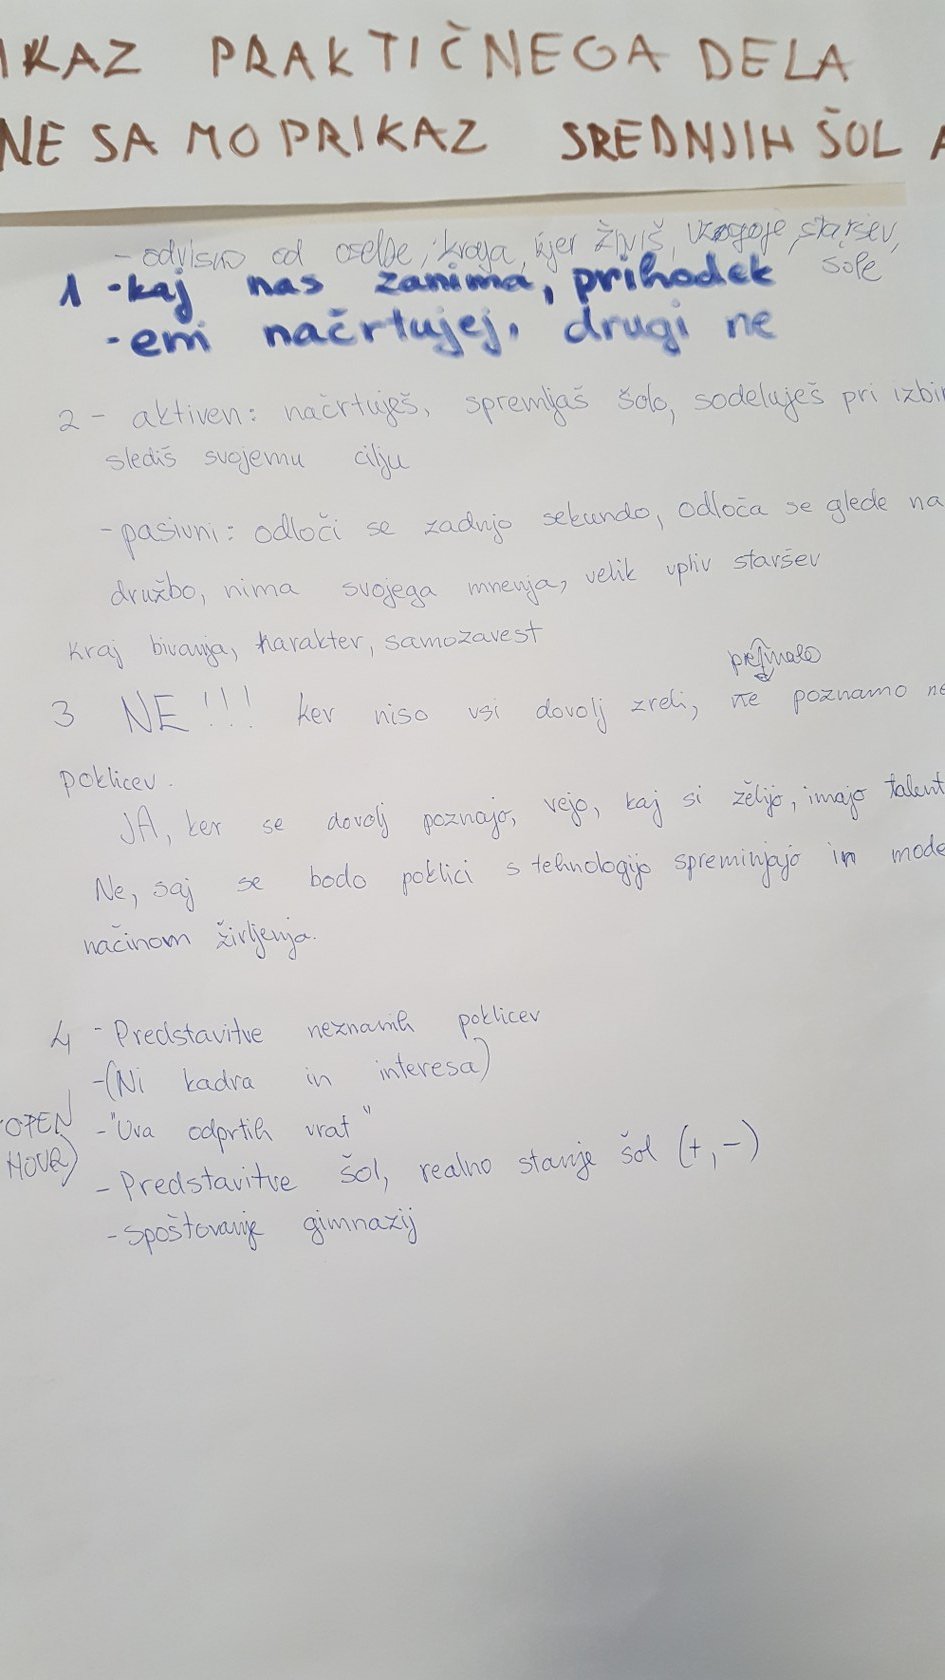 IKAZ PRAKTIČNEGA DELA
NE SAMO PRIKAZ SREDNJIH ŠOL
- odvisno od osebe, kraja, kjer živiš, vzgoje staršev,
šole
1 -kaj nas zanima, prihodek
-eni načrtujej, drugi ne
2 - aktiven: načrtuješ, spremljaš šolo, sodeluješ pri izbir
slediš svojemu cilju
- pasivni: odloči se zadnjo sekundo, odloča se glede na
družbo, nima svojega mnenja, velik vpliv staršev
kraj bivanja, karakter, samozavest
premalo
3 NE!!! ker niso vsi dovolj zreli, ne poznamo ne
poklicev.
JA, ker se dovolj poznajo, vejo, kaj si želijo, imajo talent
Ne, saj se bodo poklici s tehnologijo spreminjajo in mode
načinom življenja.
4 - Predstavitve neznanih poklicev
-(Ni kadra in interesa)
OPEN - "Ura odprtih vrat"
HOUR)
- Predstavitve šol, realno stanje šol (+, -)
- spoštovanje gimnazij